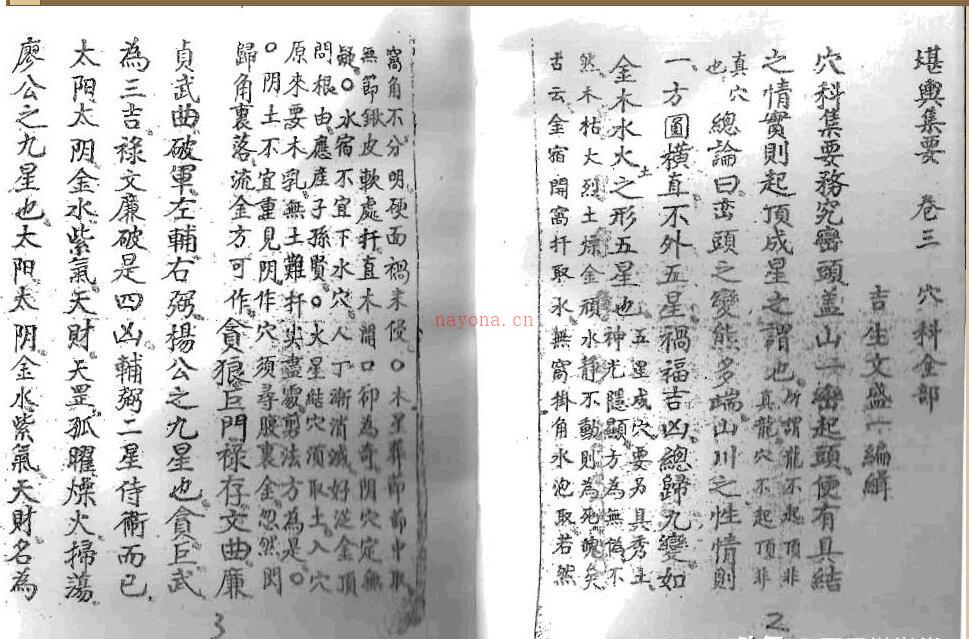 堪輿集要 卷三 穴科全部
吉生文盛一編緝
穴科集要務究巒頭盖山一巒起頭便有具結
之情實則起頂成星之謂也所謂龍不起頂非
真龍穴不起頂非
真穴
也總論曰巒頭之變態多端山川之性情則
一方圓橫直不外五星禍福吉凶總歸九變如
金木水火土之形五星也五星成穴要另具秀
神光隱顯方為無偽不
然木枯火烈土燥金頑水靜不動則為死魄矣
古云金宿開窩扦取水無窩掛角水泡取若然
窩角不分明硬面禍来侵○木星葬節節中取
無節鍬皮軟處扦直木開口卻為奇阴穴定無
疑○水宿不宜下水穴人丁漸消滅好泛金頂
問根由應産子孫賢○火星結穴須取土入穴
原来要木乳無土難扦尖盡處剪法方為是○
○阴土不宜重見阴作穴須尋腰裏金忽然閃
歸角裏落流金方可作貪狼巨門祿存文曲廉
貞武曲破軍左輔右弼楊公之九星也貪巨武
為三吉祿文廉破是四凶輔弼二星侍衛而已
太阳太阴金水紫氣天財天罡孤曜燥火掃蕩
廖公之九星也太阳太阴金水紫氣天財名為
3
2
nayona.cn